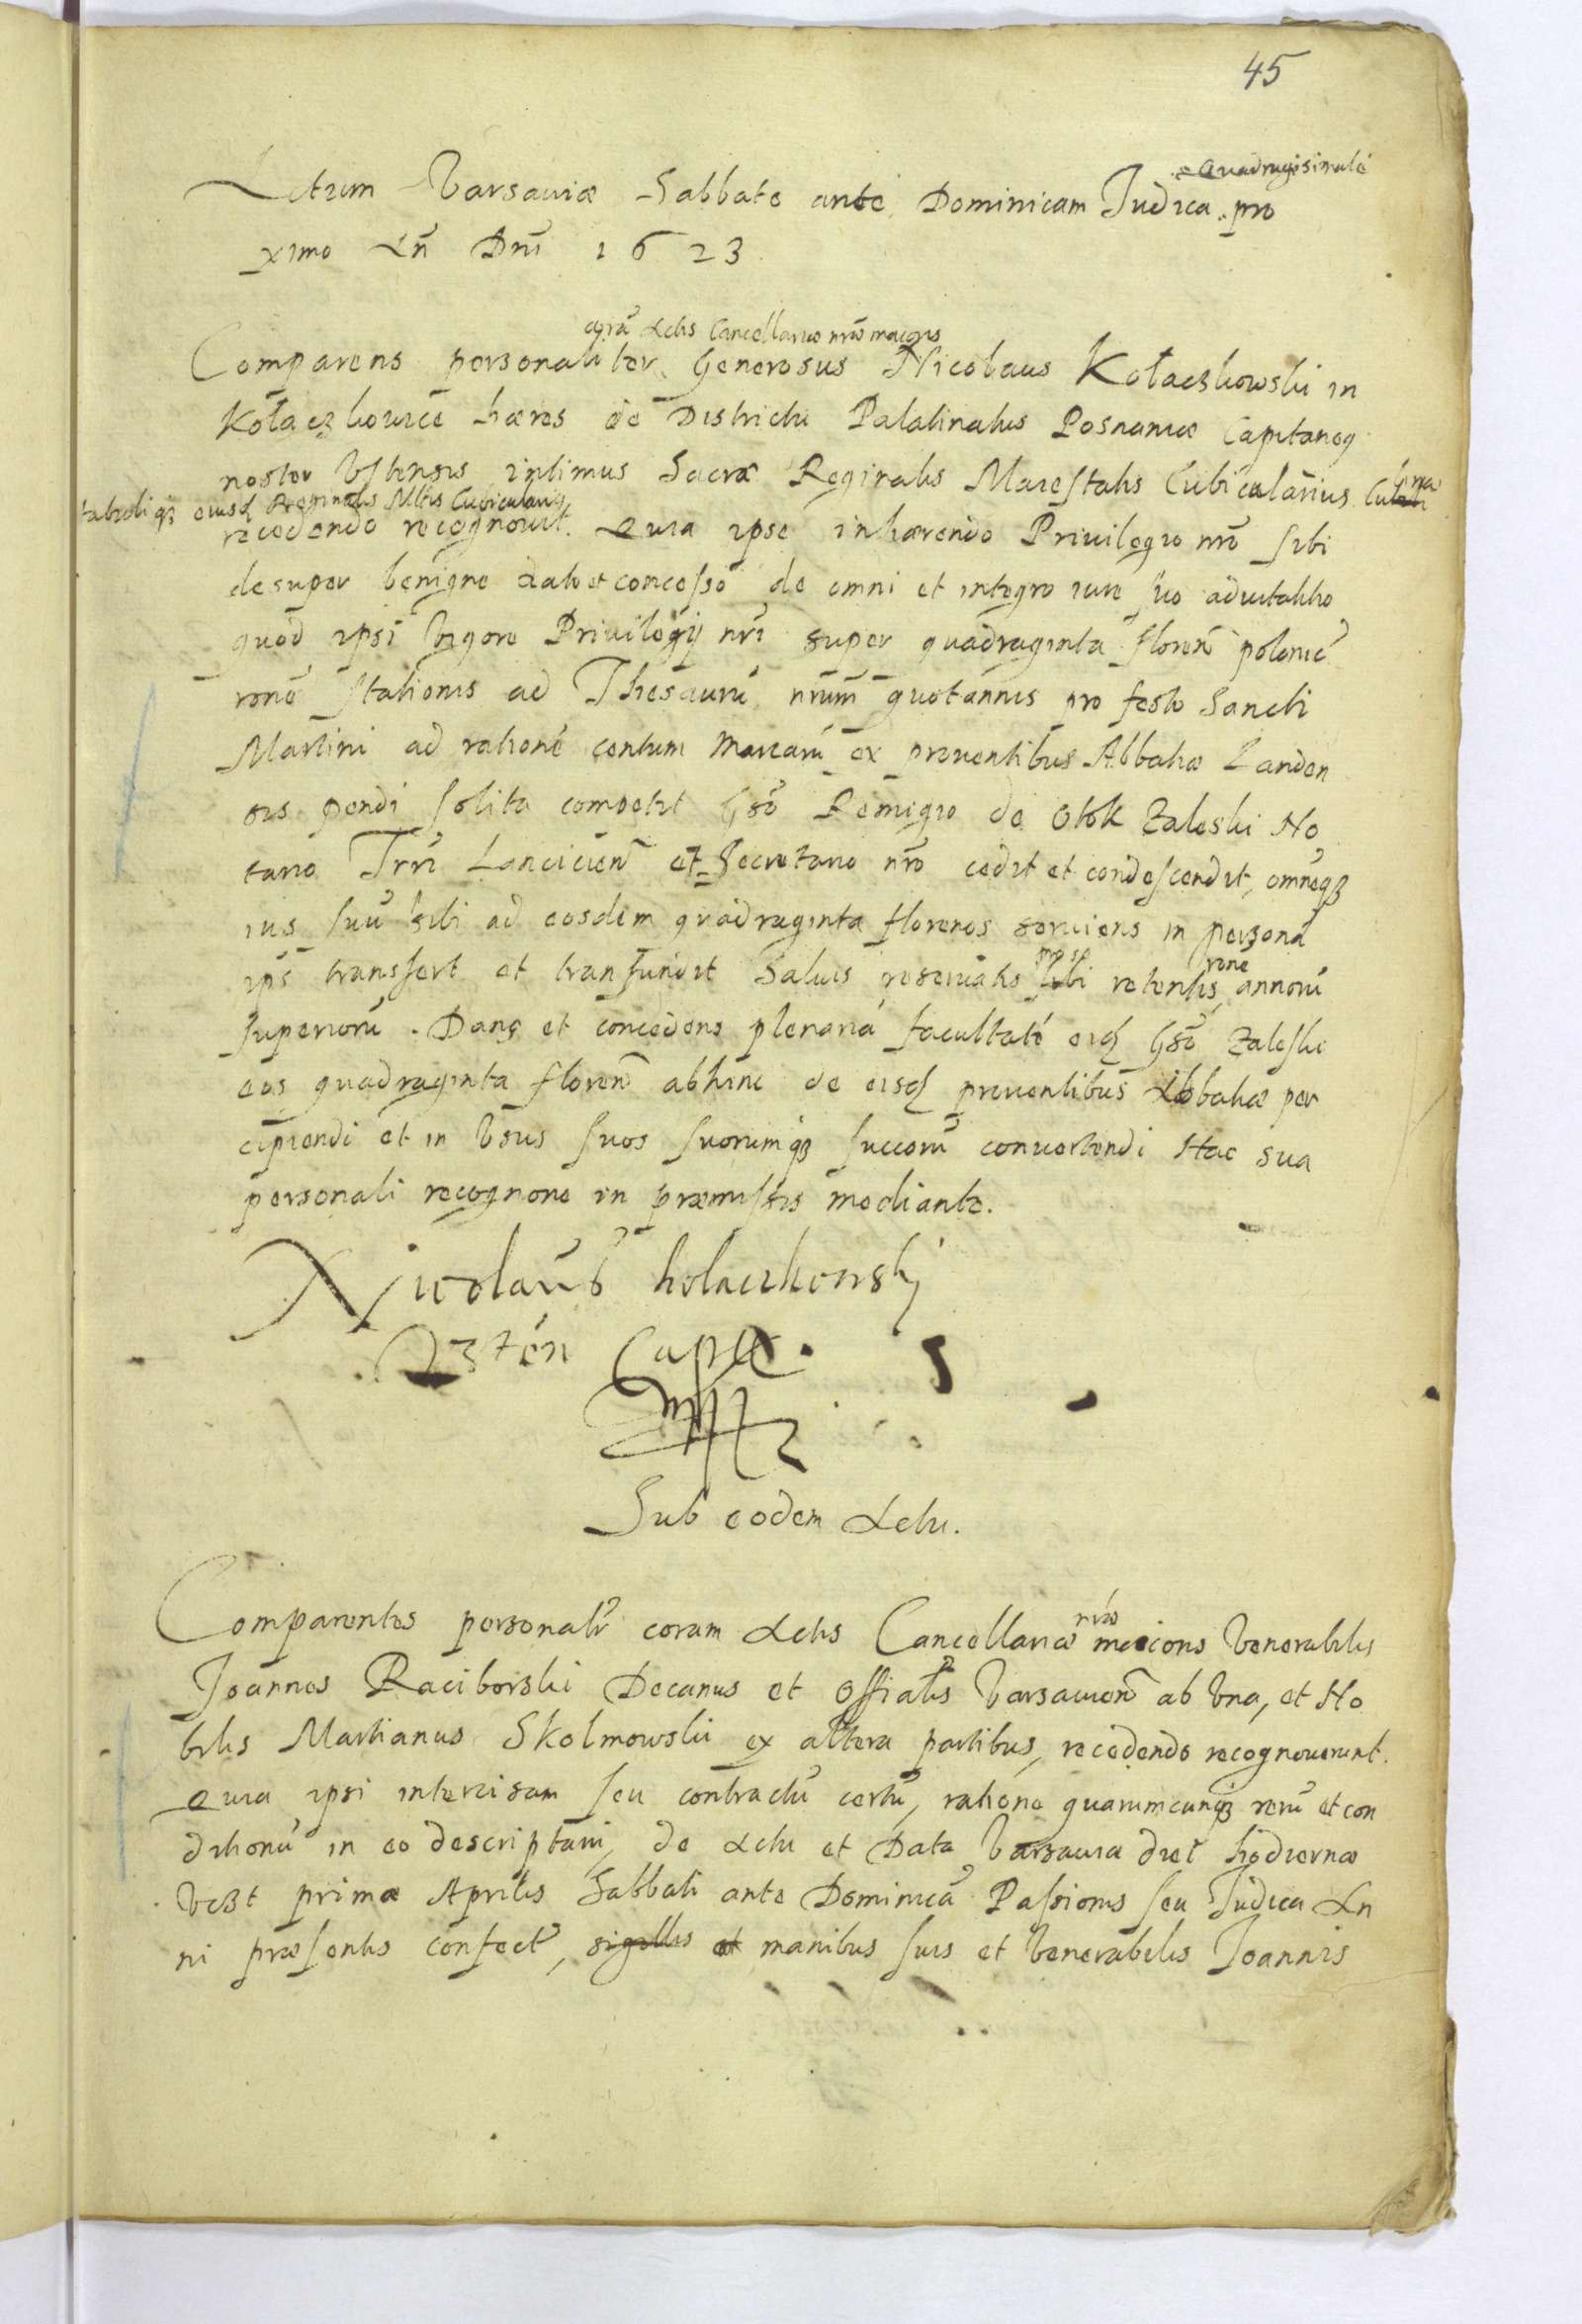 45
Quadragesimale
Actum Varsauiæ Sabbato ante Dominicam Judica pro
ximo An̄ Dnī 1623
corā Actis Cancellariæ nr̄æ maioris
Comparens personaliter Generosus Nicolaus Kołaczkowski in
Kołaczkowice hæres de Districtu Palatinatus Posnaniæ Capitaneq
noster Vstensis intimus Sacræ Reginalis Maiestatis Cubicularius
eiusd Reginalis Mtis Cubicularius
recedendo recognouit. Quia ipse inhærendo Priuilegio nrō sibi
desuper benigne dato et concesso de omni et integro iure suo aduitalitio
quod ipsi vigore Priuilegij nrī super quadraginta floren̄ polonic̄
rone Stationis ad Thesaurū nrūm quotannis pro festo Sancti
Martini ad rationē centum marcarū ex prouentibus Abbatiæ Landen
sis pendi solita competit Gsō Remigio de Otok Zaleski No
tario Trrī Lanciciēn et Secretario nrō cedit et condescendit, omneqȝ
ius suū sibi ad eosdem quadraginta florenos seruiens in personā
ips̄ transfert et transfundit Saluis reseruatis sibi retentis annorū
rone
superiorū. Dans et concedens plenariā facultatē eid Gsō Zaleski
eos quadraginta floren̄ abhinc de eisd prouentibus Abbatiæ per
cipiendi et in vsus suos suorumqȝ succorū conuertendi Hac sua
personali recognone in præmissis mediante.
Nicolaūs kolaczkowskj
Vzten Capit.
mpp
Sub eodem Actu.
nr̄æ
Comparentes personalr̄ coram Actis Cancellariæ maioris Venerabilis
Joannes Raciborski Decanus et Offialis Varsauien̄ ab vna, et No
bilis Martianus Skolmowski ex altera partibus, recedendo recognouerunt.
Quia ipsi intercisam seu contractū certū, ratione quarumcunqȝ rerū et con
ditionū in eo descriptarū, de Actu et Data Varsauia diei hodiernæ
vczt primæ Aprilis Sabbati ante Dominicā Passionis seu Judica An
ni præsentis confect̄, sigillis et manibus suis et Venerabilis Joannis